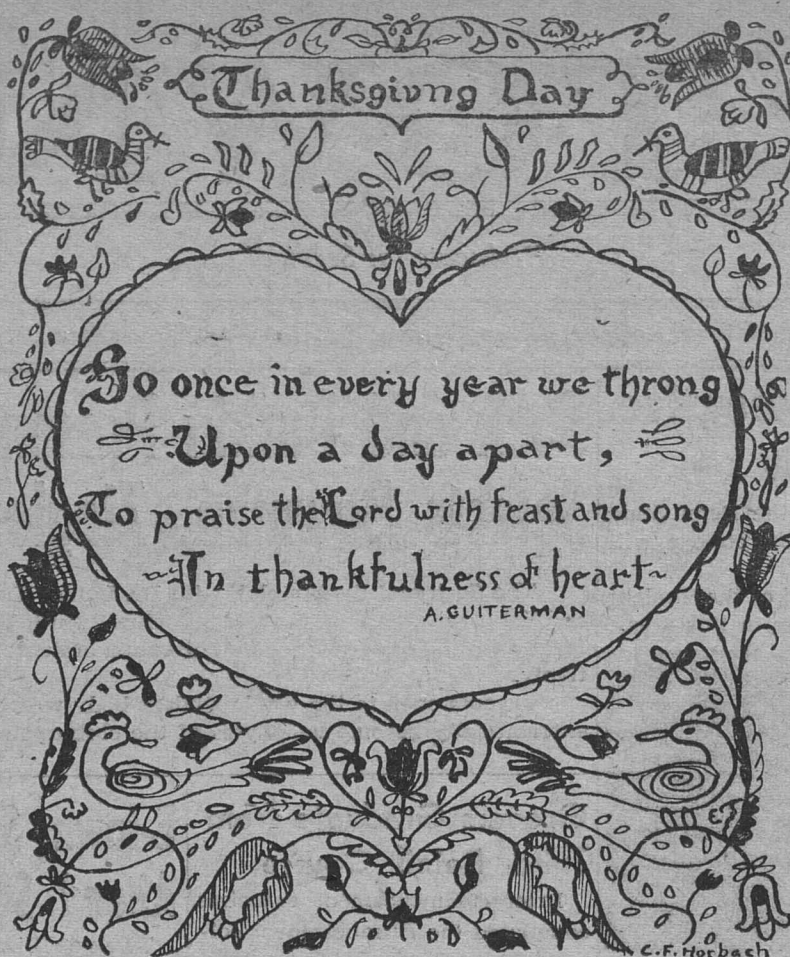 Thanksgivng Day
So once in every year we throng
Upon a day apart,
To praise the Lord with feast and song
In thankfulness of heart
A. GUITERMAN
C.F. Horbach